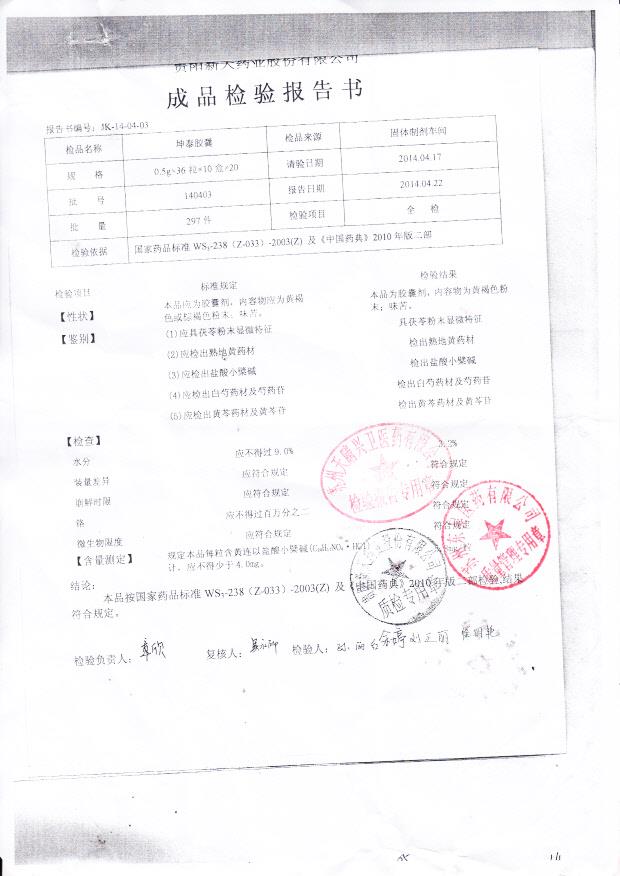 贵阳新天药业股份有限公司
成品检验报告书
报告书编号：JK-14-04-03
检品名称 坤泰胶囊 检品来源 固体制剂车间
规 格 0.5g×36粒×10盒×20 请验日期 2014.04.17
批 号 140403 报告日期 2014.04.22
批 量 297件 检验项目 全 检
检验依据 国家药品标准 WS₅-238（Z-033）-2003(Z) 及《中国药典》2010年版二部
检验项目 标准规定 检验结果
【性状】 本品应为胶囊剂，内容物应为黄褐色或棕褐色粉末，味苦。 本品为胶囊剂，内容物为黄褐色粉末；味苦。
【鉴别】 (1)应具茯苓粉末显微特征 具茯苓粉末显微特征
(2)应检出熟地黄药材 检出熟地黄药材
(3)应检出盐酸小檗碱 检出盐酸小檗碱
(4)应检出白芍药材及芍药苷 检出白芍药材及芍药苷
(5)应检出黄芩药材及黄芩苷 检出黄芩药材及黄芩苷
【检查】
水分 应不得过9.0% 2%
装量差异 应符合规定 符合规定
崩解时限 应符合规定 符合规定
铬 应不得过百万分之二 符合规定
微生物限度 应符合规定 符合规定
【含量测定】 规定本品每粒含黄连以盐酸小檗碱(C₂₀H₁₇NO₄·HCl)
计，应不得少于4.0mg。
结论：
本品按国家药品标准 WS₅-238（Z-033）-2003(Z) 及《中国药典》2010年版二部检验,结果
符合规定。
检验负责人： 章欣 复核人： 检验人： 余婷
检验报告专用章
医药有限公司
质量管理专用章
股份有限公司
质检专用章